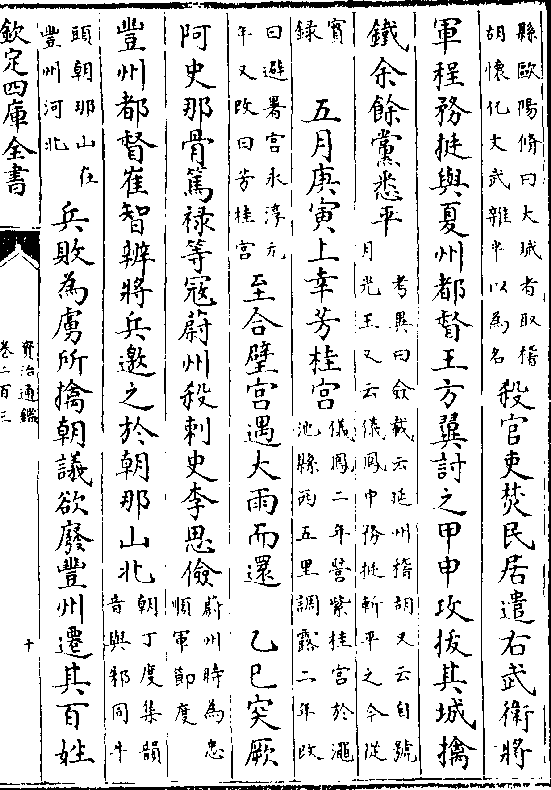 縣歐陽脩曰大斌者取稽
胡懷化文武雜半以為名
殺官吏焚民居遣右武衛將
軍程務挺與夏州都督王方翼討之甲申攻拔其城擒
鐵余餘黨悉平
考異曰僉載云延州稽胡又云自號
月光王又云儀鳳中務挺斬平之今從
實
録
五月庚寅上幸芳桂宮
儀鳳二年營紫桂宮於澠
池縣西五里調露二年改
曰避暑宮永淳元
年又改曰芳桂宮
至合璧宮遇大雨而還
乙巳突厥
阿史那骨篤禄等寇蔚州殺刺史李思儉
蔚州時為忠
順軍節度
豐州都督崔智辨將兵邀之於朝那山北
朝丁度集韻
音與邾同牛
頭朝那山在
豐州河北
兵敗為虜所擒朝議欲廢豐州遷其百姓
欽定四庫全書
資治通鑑
卷二百三
十